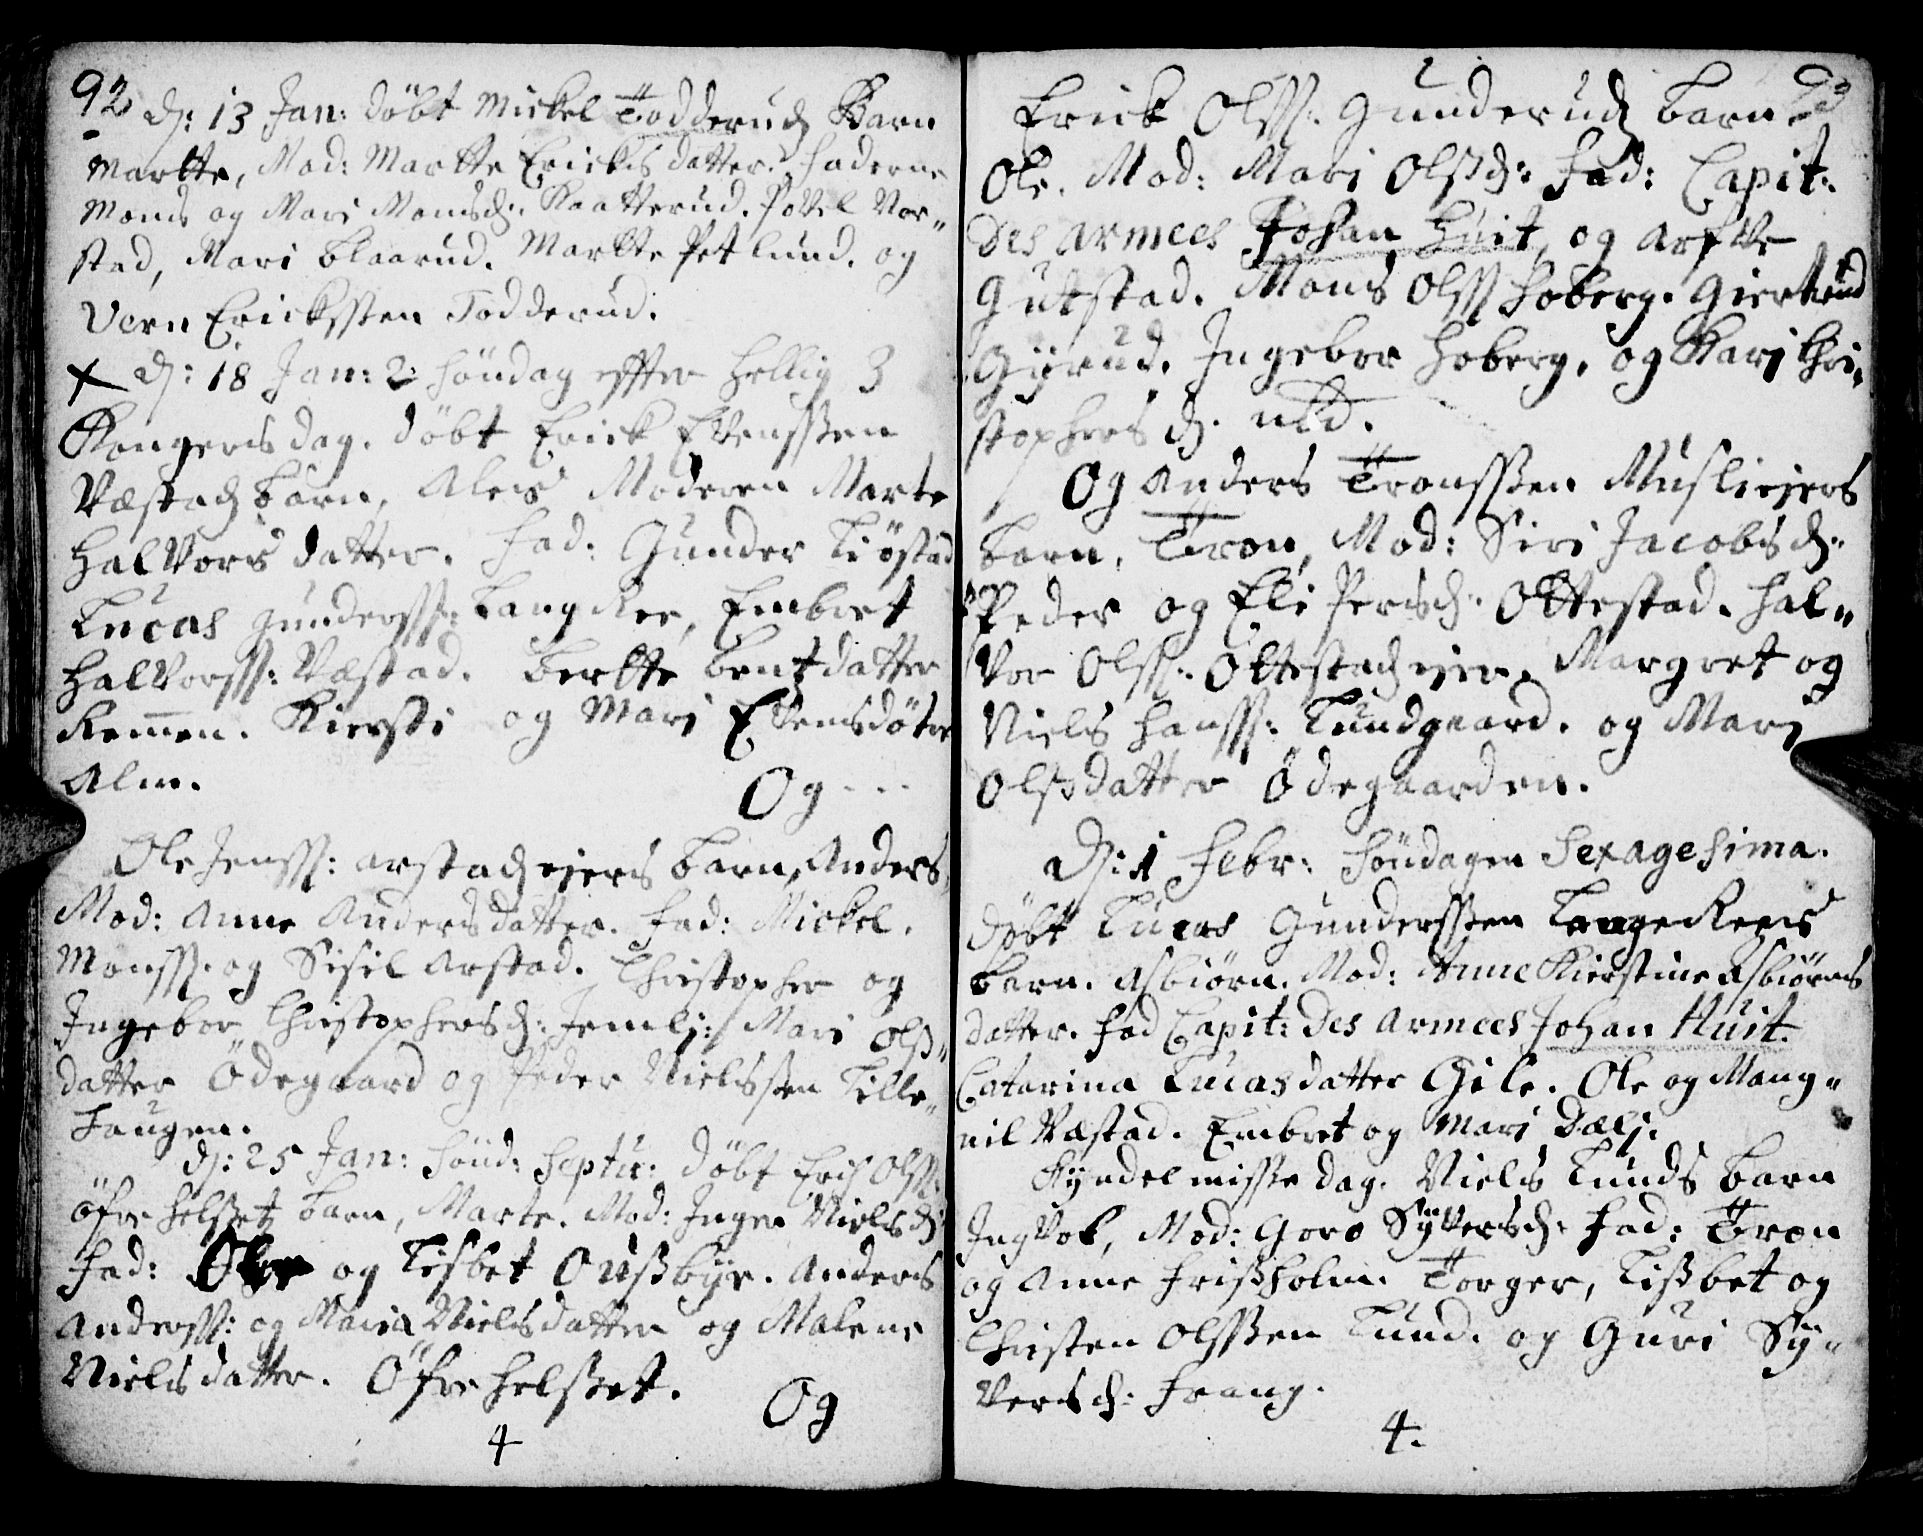 92
d: 13 Jan: döbt Mickel Todderud Barn
Martte, Mod: Martte Ericks datter. Faderne
Mons og Mari Monsd: Kaatterud. Povel Vor-
stad, Mari Blaarud. Martte Petlund. og
Vern Erickssen Todderud.
x d: 18 Jan: 2 Söndag effter Hellig 3
Kongers dag. döbt Erick Evenssen
Væstad barn, Aleis Moderen Marte
Halvors datter. Fad: Gunder Kiöstad
Lucas Gunderss: Langkee, Embret
Halvorss: Væstad. Bertte Bentzdatter
Remen. Kiersti og Mari Evensdötre
Alm.
Og - - -
Ole Jenss: Arstad ejers barn, Anders,
Mod: Anne Anders datter. Fad: Mickel.
Monss. og Sisil Arstad. Christopher og
Ingebor Christophersd: Jemli: Mari Olß-
datter Ödegaard og Peder Nielssen Lille-
haugen.
d: 25 Jan: Sönd: Septu: döbt Erich Olss:
öfre Helset barn, Marte. Mod: Inger Nielsd:
Fad: og Lisbet Oußbye. Anders
Anderss: og Maria Nielsdatter og Malene
Nielsdatter. Öfre Helset.
Og
4
93
Erick Olss: Gunderud barn
Ole. Mod: Mari Olßd: Fad: Capit:
des Armees Johan Huit, og Arfve
Gutstad. Mons Olss Hoberg. Giertrud
Gyrud. Ingebor Hoberg, og Kari Chri-
stophers d. ibd.
Og Anders Tronssen Musliejers
barn, Tron, Mod: Siri Jacobsd:
Peder og Eli Persd: Ottestad. Hal-
vor Olss: Ottestad ejer. Margret og
Niels Hanss: Lundgaard. og Mari
Olßdatter Ödegaarden.
D: 1 Febr: Söndagen Sexagesima.
döbt Lucas Gunderssen Langekees
barn. Asbiörn. Mod: Anne Kierstine Asbiörns
datter. Fad Capit: des Armees Johan Huit.
Catarina Lucasdatter Gile. Ole og Mang-
nil Væstad. Embret og Mari Dæli.
Kyndelmisse dag. Niels Lunds barn
Ingvob, Mod: Goro Syversd: Fad: Tron
og Anne Frißholm. Torger, Lißbet og
Christen Olssen Lund. og Guri Sy-
versd: Fraug.
4.